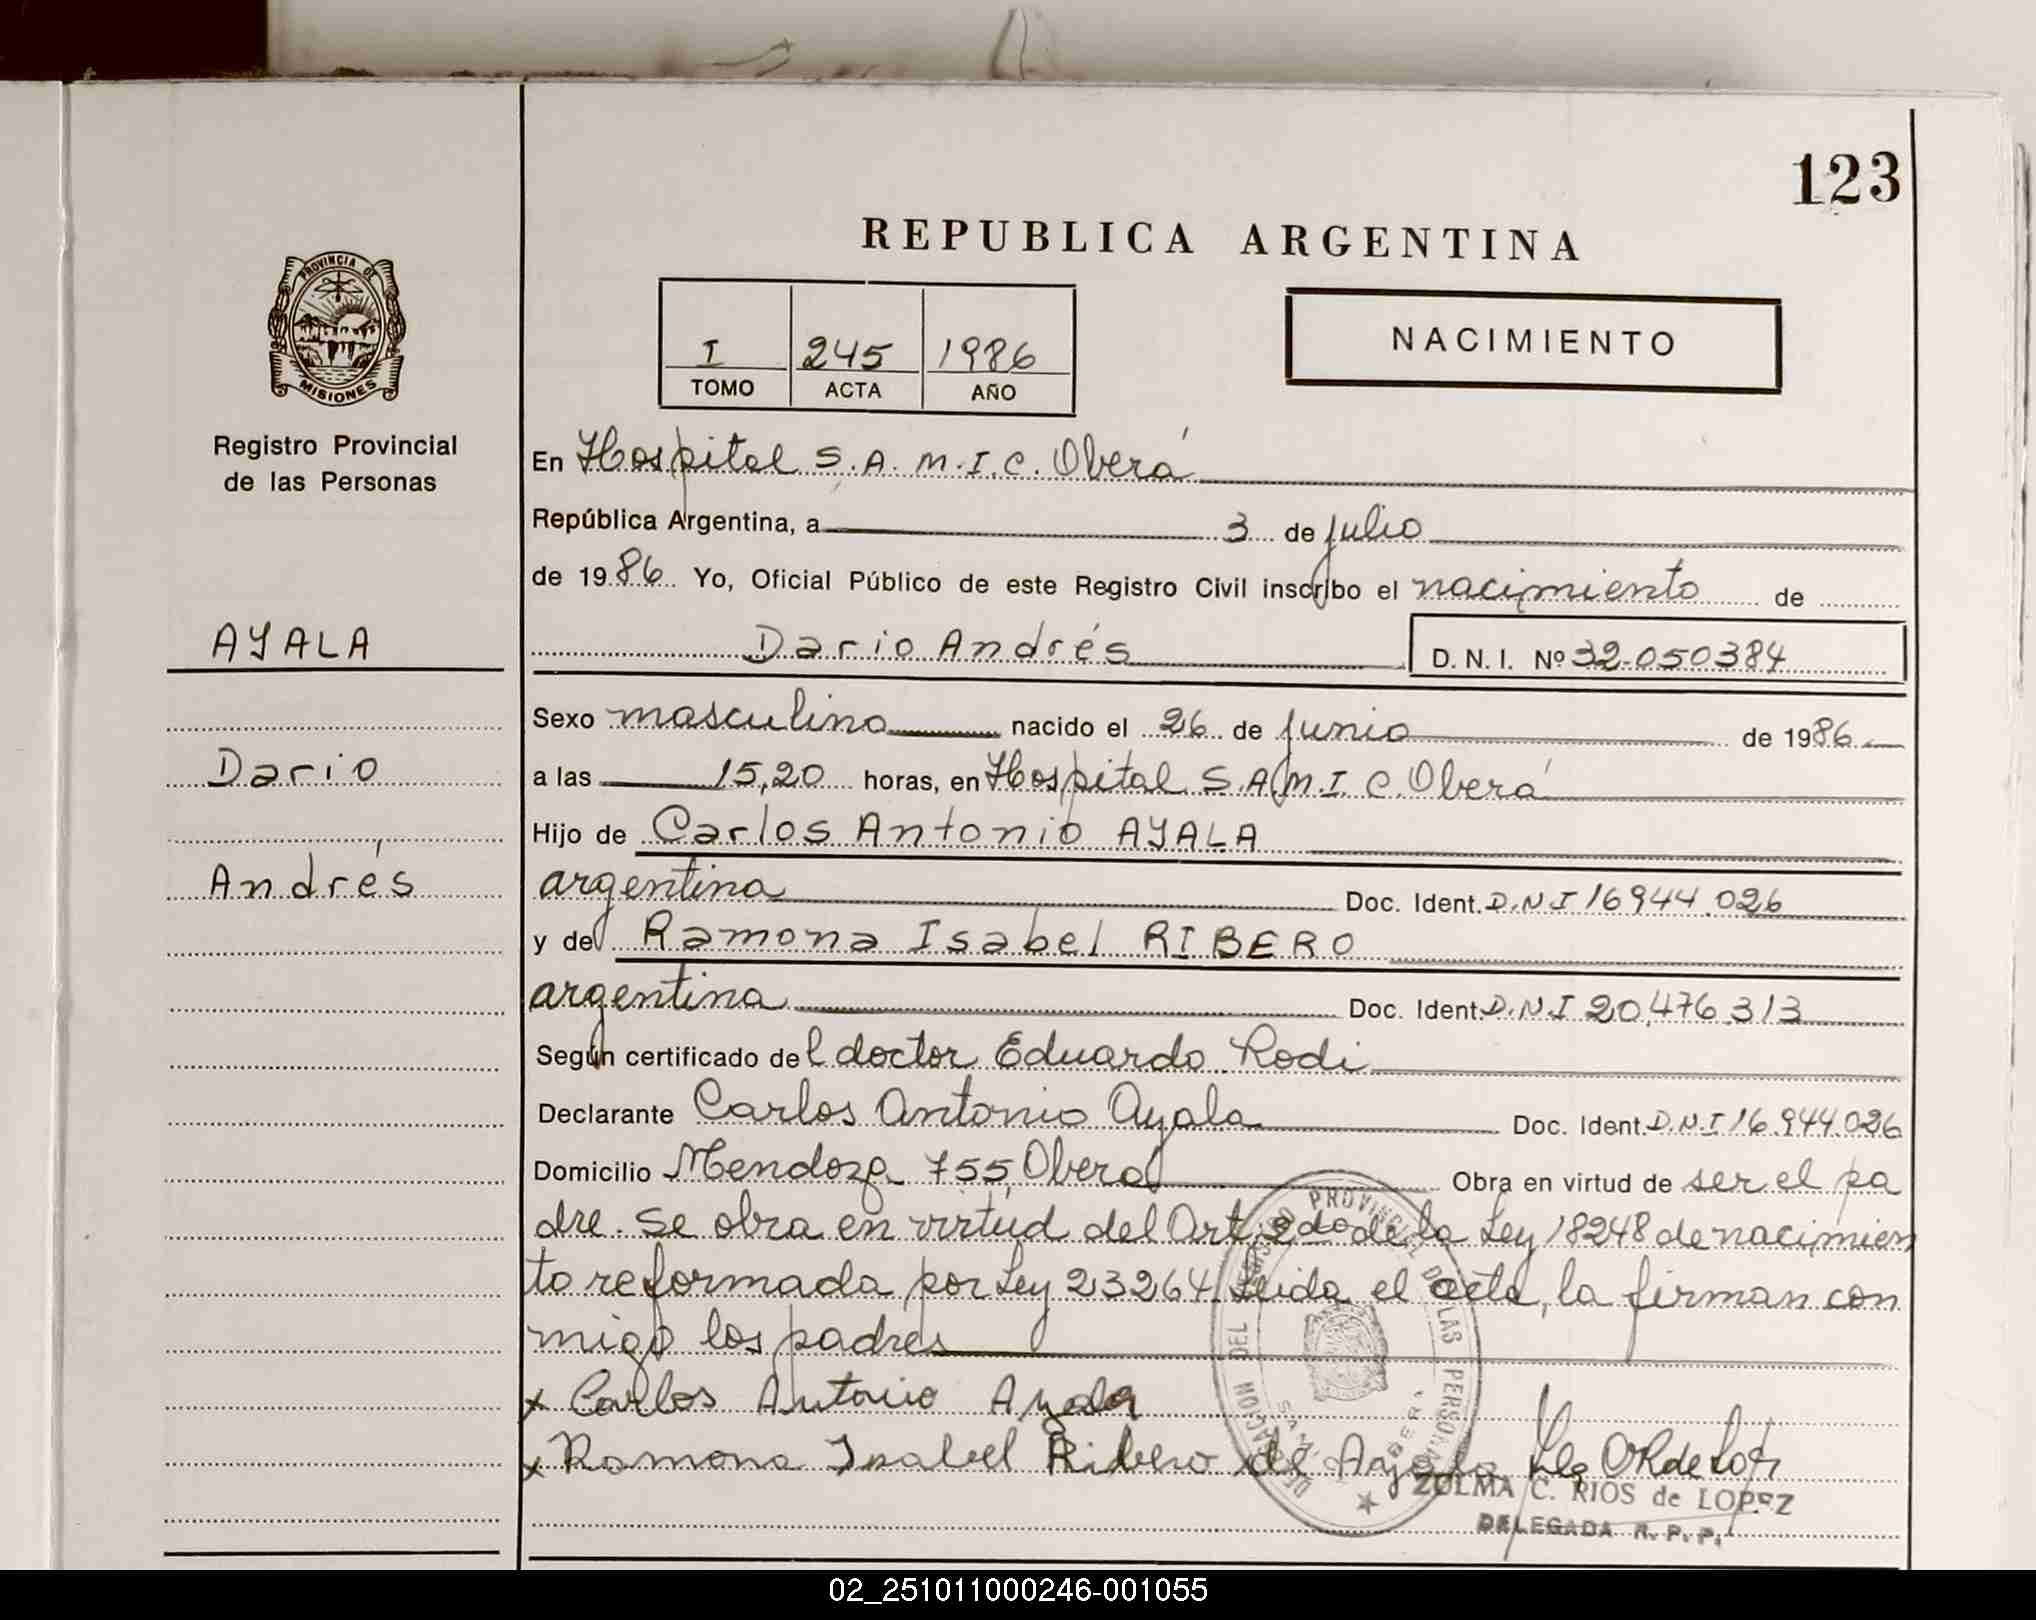 123
REPUBLICA ARGENTINA
PROVINCIA DE
MISIONES
Registro Provincial
de las Personas
I 245 1986
TOMO ACTA AÑO
NACIMIENTO
En Hospital S.A.M.I.C. Oberá
República Argentina, a 3 de julio
de 1986 Yo, Oficial Público de este Registro Civil inscribo el nacimiento de
Dario Andrés D.N.I. Nº 32.050384
AYALA
Dario
Andrés
Sexo masculino nacido el 26 de junio de 1986
a las 15,20 horas, en Hospital S.A.M.I.C. Oberá
Hijo de Carlos Antonio AYALA
argentina Doc. Ident. D.N.I 16944.026
y de Ramona Isabel RIBERO
argentina Doc. Ident. D.N.I 20.476.313
Según certificado del doctor Eduardo Rodi
Declarante Carlos Antonio Ayala Doc. Ident. D.N.I 16.944.026
Domicilio Mendoza 755, Oberá Obra en virtud de ser el pa
dre. Se obra en virtud del Art. 2do de la Ley 18248 de nacimien
to reformada por Ley 23264. Leida el acta, la firman con
migo los padres
x Carlos Antonio Ayala
x Ramona Isabel Ribero de Ayala
ZULMA C. RIOS de LOPEZ
DELEGADA R.P.P.
02_251011000246-001055